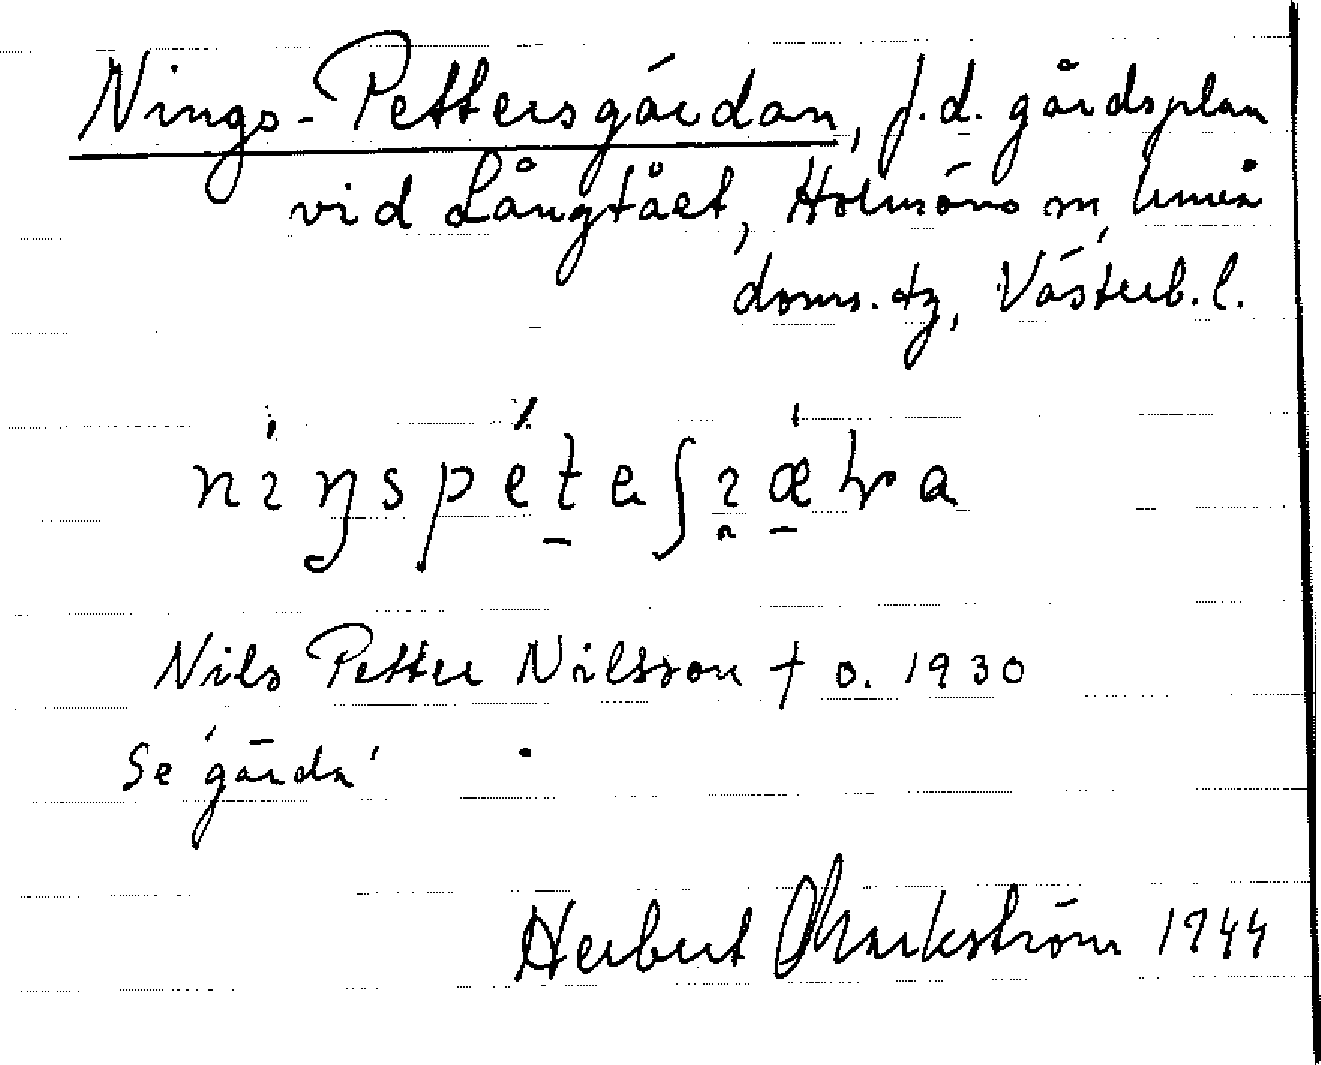 Nings-Pettersgärdan, f.d. gårdsplan
vid Långtået, Holmöns sn, Umeå
doms. tg, Västerb. l.
Nils Petter Nilsson † o. 1930
Se 'gärda'
Herbert Markström 1944